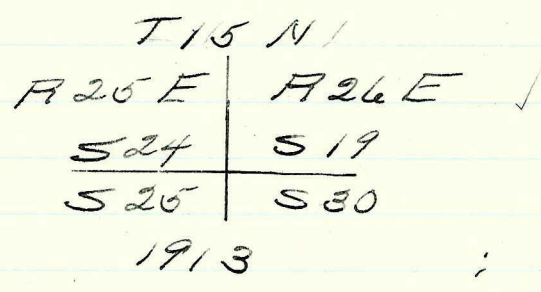 T 15 N
R 25 E R 26 E
S 24 S 19
S 25 S 30
1913 ;